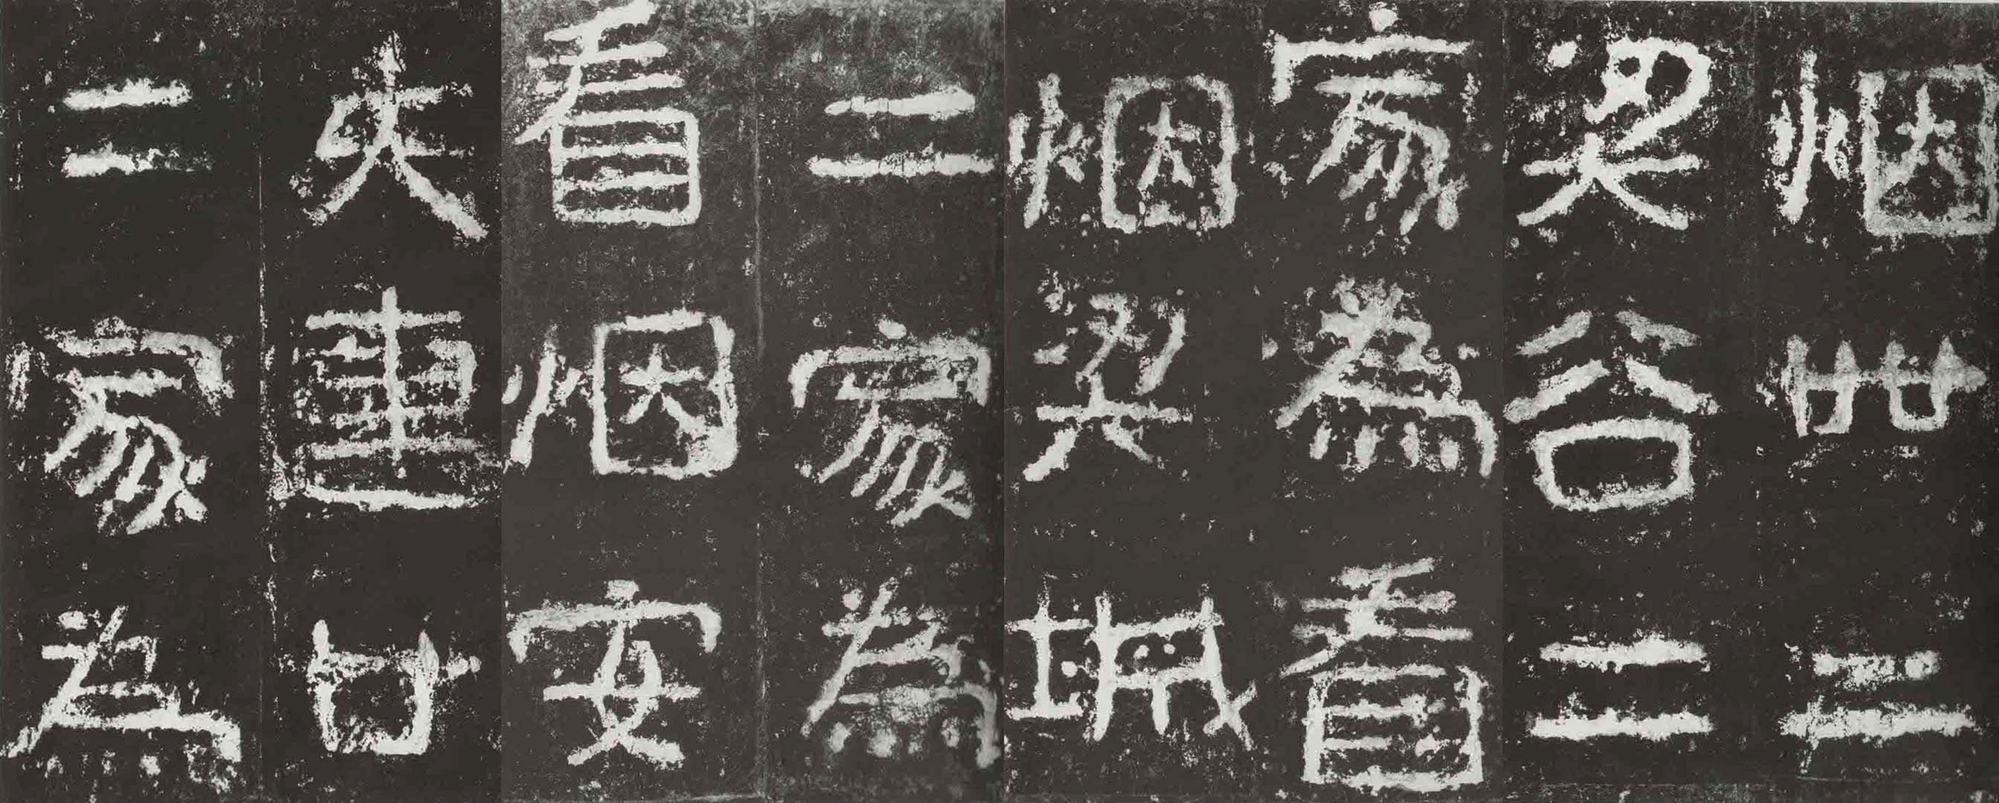 烟卌三
梁谷二
家為看
烟梁城
二家為
看烟安
夫連廿
二家為